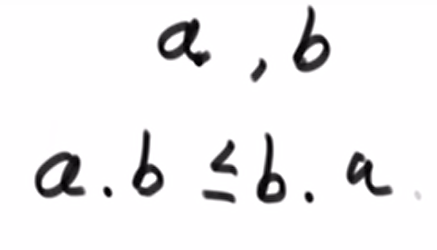 a , b
a . b ≤ b . a .